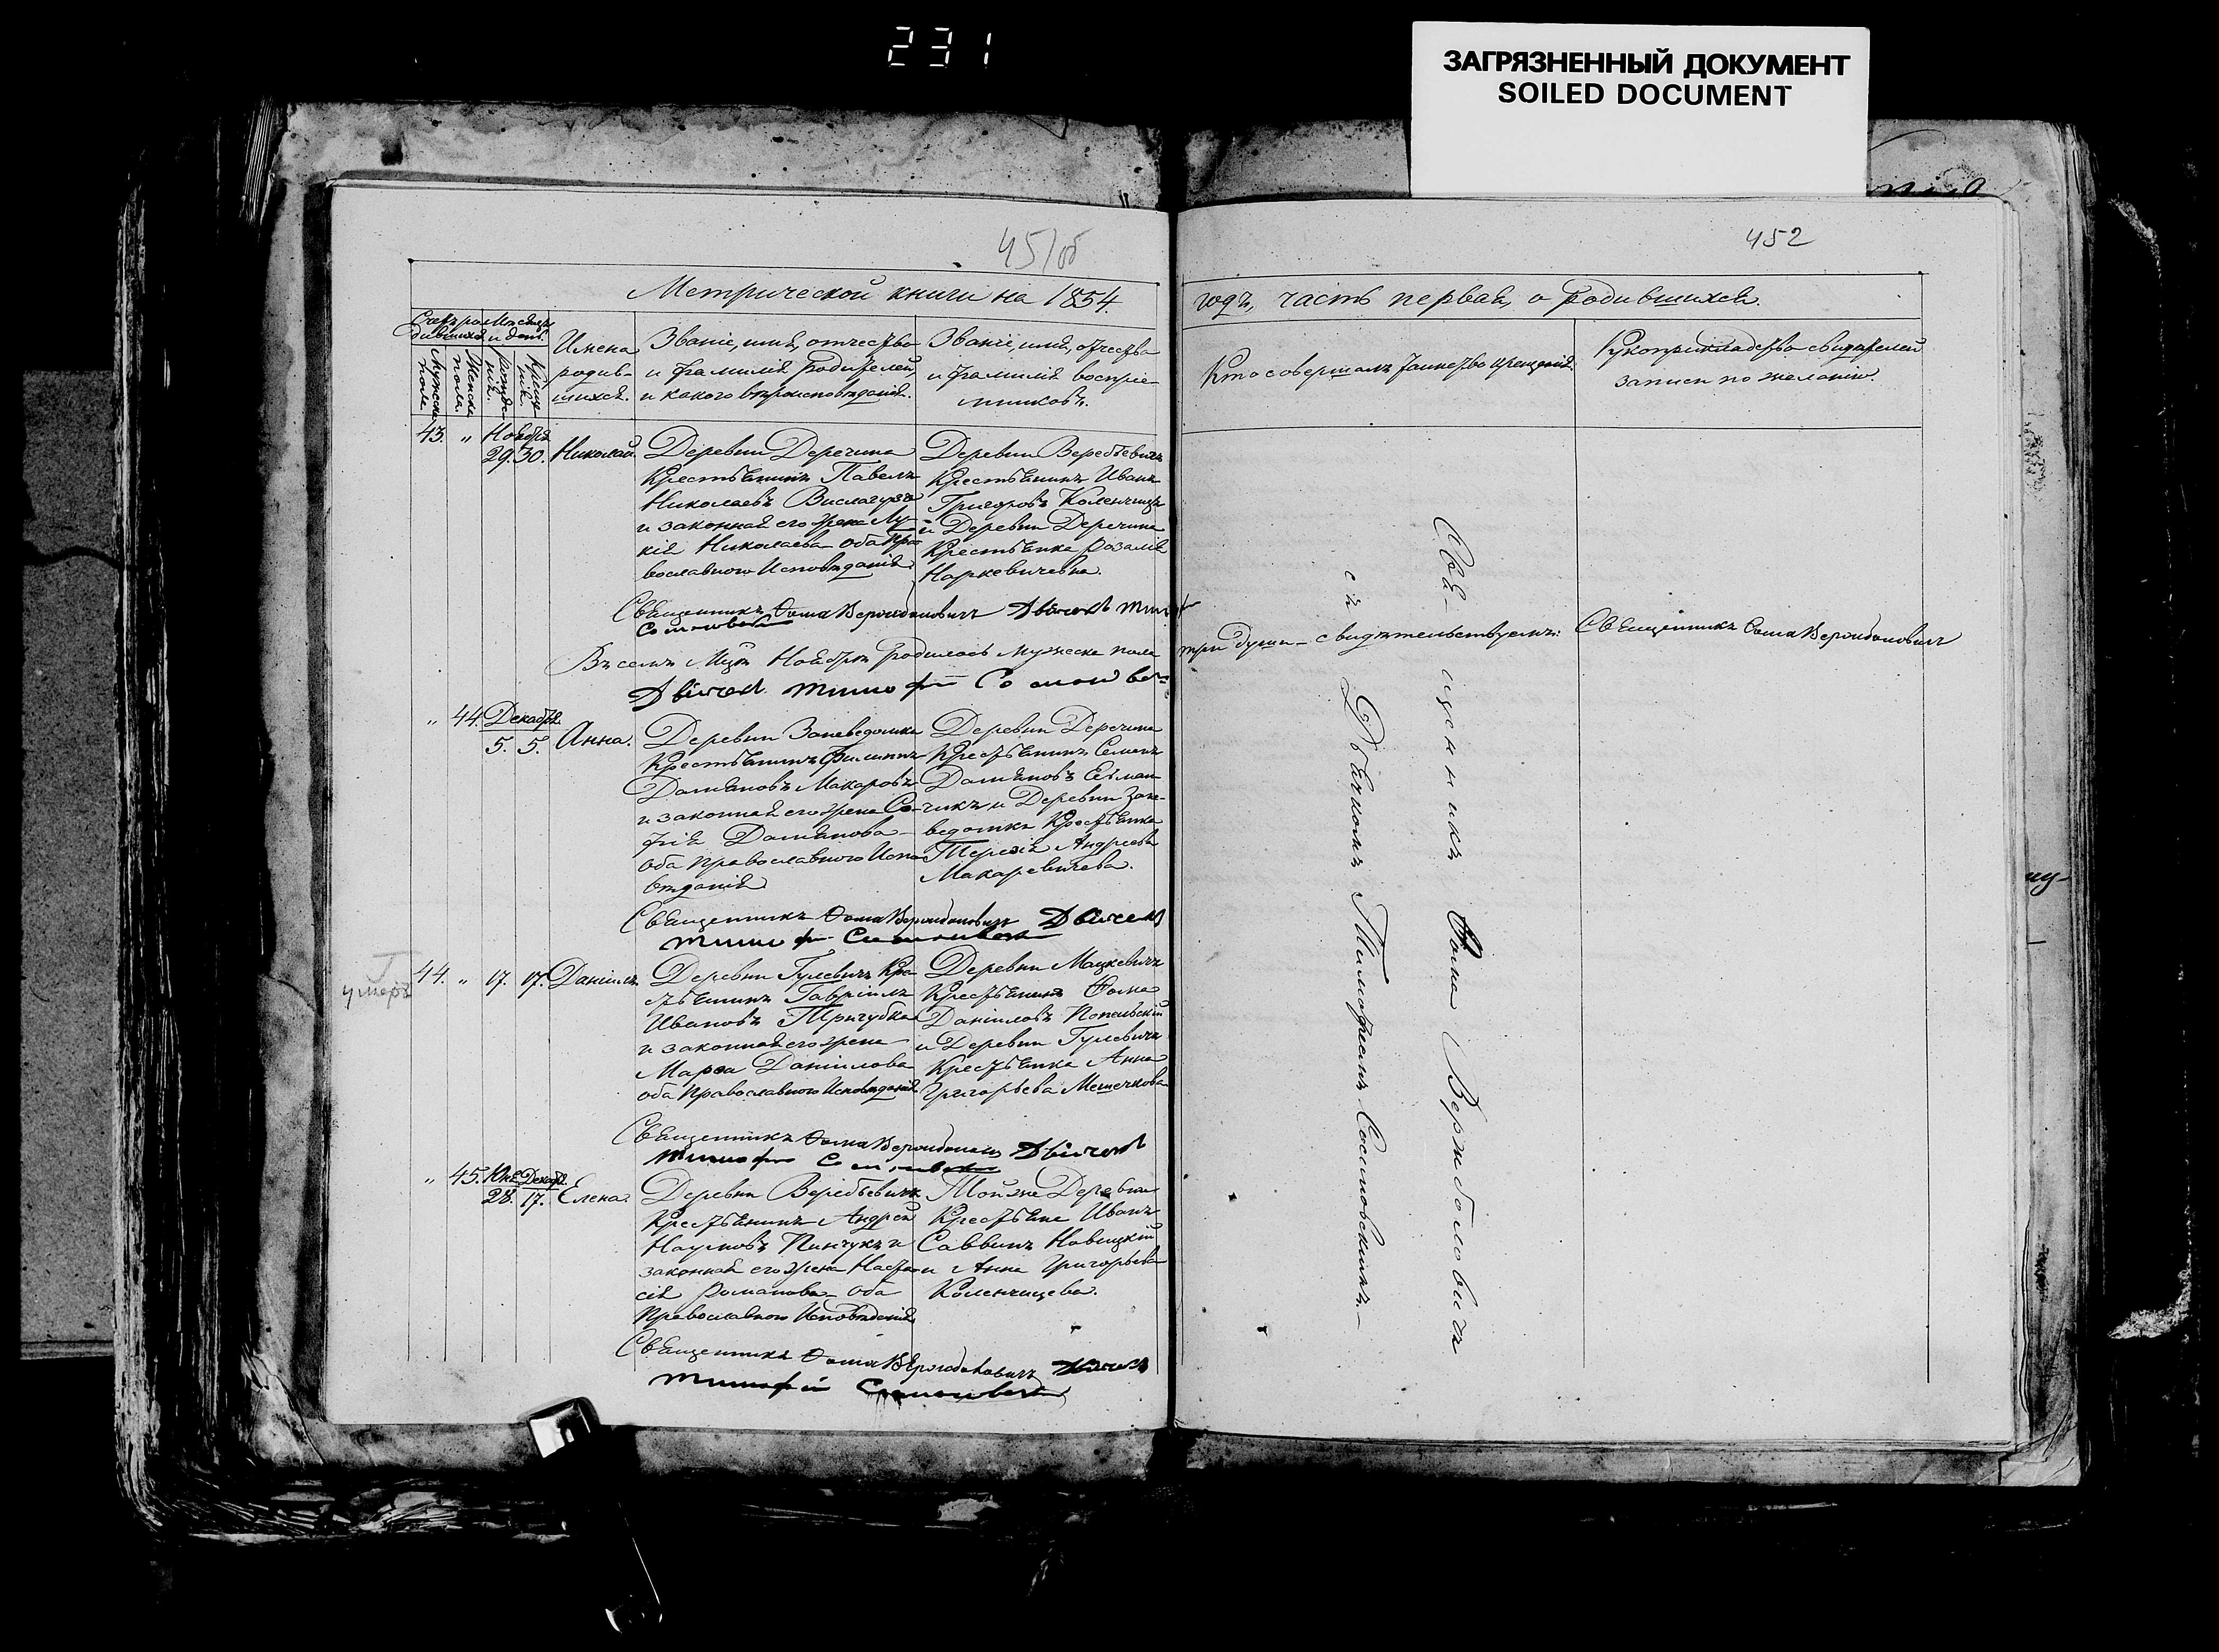 231
ЗАГРЯЗНЕННЫЙ ДОКУМЕНТ
SOILED DOCUMENT
451об
452
Метрической книги на 1854.
годъ, часть первая, о родившихся.
Счетъ родившихся
Мѣсяцъ и день.
Мужеска пола.
Женска пола.
Рожденія.
Крещенія.
Имена
родив-
шихся.
Званіе, имя, отчество
и фамилія родителей,
и какого вѣроисповѣданія.
Званіе, имя, отчество
и фамилія воспріе-
мниковъ.
Кто совершалъ таинство крещенія.
Рукоприкладство свидѣтелей
записи по желанію.
43. " Ноября
29. 30. Николай.
Деревни Деречина
Крестьянинъ Павелъ
Николаевъ
и законная его жена Лу-
кія Николаева оба Пра-
вославного Исповѣданія
Деревни Веребіевичъ
Крестьянинъ Иванъ
Григоровъ Коленчицъ
и Деревни Деречина
Крестьянка Розалія
Наркевичевна.
Священникъ Фома Вержболовичъ
Въ семъ Мцѣ Ноябрѣ родилось мужеска пола
три души свидѣтельствуемъ: Священникъ Фома Вержболовичъ
" 44. Декабря
5. 5. Анна.
Деревни
Крестьянинъ Филиппъ
Даміановъ Макаровъ
и законная его жена Со-
фія Даміанова
оба Православного Испо-
вѣданія
Деревни Деречина
Крестьянинъ Семенъ
Даміановъ Гетман-
чикъ и Деревни
Крестьянка
Терезія Андреева
Макаревичева.
Священникъ Фома Вержболовичъ
умеръ
44. " 17. 17. Даніилъ
Деревни Гулевичъ Кре-
стьянинъ Гавріилъ
Ивановъ Тригубка
и законная его жена
Марѳа Даніилова
оба Православного Исповѣданія
Деревни Мацкевичъ
Крестьянинъ Фома
Даніиловъ
и Деревни Гулевичъ
Крестьянка Анна
Григорьева Мешечкова
Священникъ Фома Вержболовичъ
" 45. Декабря
28. 17. Елена.
Деревни Веребіевичъ
Крестьянинъ Андрей
Наумовъ Пинчукъ и
законная его жена Наста-
сія Романова оба
Православного Исповѣданія
Той же Деревни
Крестьяне Иванъ
Саввинъ Новицкій
и Анна Григорьева
Коленчицева.
Священникъ Фома Вержболовичъ
Священникъ Фома Вержболовичъ
съ Дьякомъ Тимофеемъ Сосновскимъ.